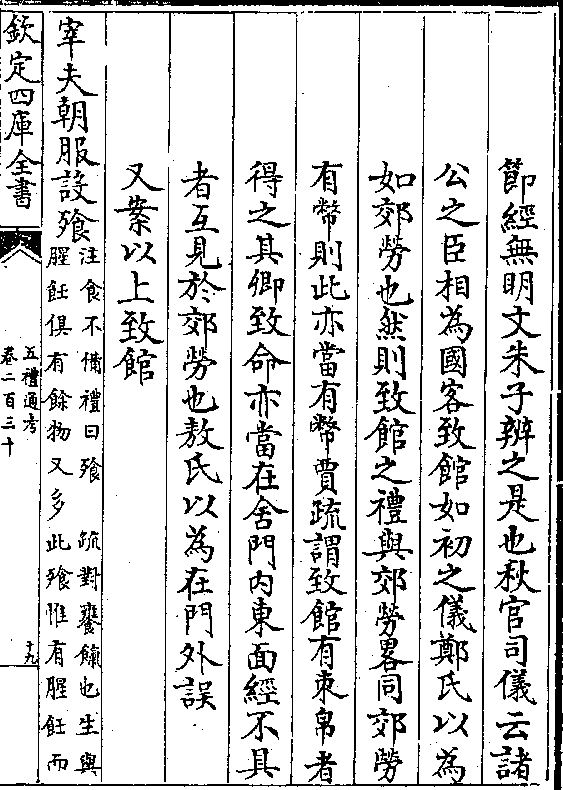 節經無明文朱子辨之是也秋官司儀云諸
公之臣相為國客致館如初之儀鄭氏以為
如郊勞也然則致館之禮與郊勞畧同郊勞
有幣則此亦當有幣賈疏謂致館有束帛者
得之其卿致命亦當在舍門内東面經不具
者互見於郊勞也敖氏以為在門外誤
又案以上致館
宰夫朝服設飱
注食不備禮曰飱 疏對饔餼也生與
腥飪俱有餘物又多此飱惟有腥飪而
欽定四庫全書
五禮通考
卷二百三十
十九